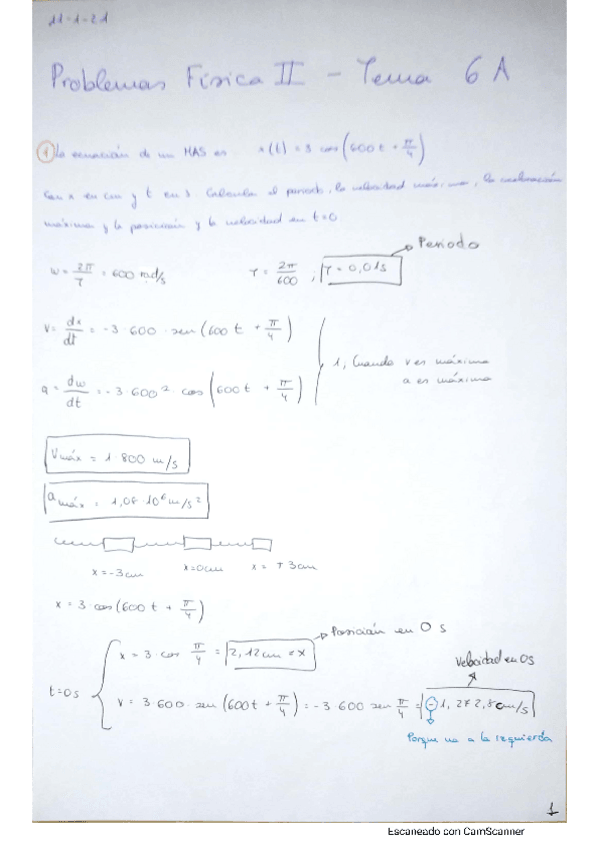 11-1-21
Problemas Física II - Tema 6A
① La ecuación de un MAS es x(t) = 3 cos (600t + π/4)
con x en cm y t en s. Calcula el periodo, la velocidad máxima, la aceleración
máxima y la posición y la velocidad en t=0
Periodo
ω = 2π/T = 600 rad/s T = 2π/600 ; T = 0,01s
v = dx/dt = -3·600·sen(600t + π/4)
1, Cuando v es máxima
a es máxima
a = dω/dt = -3·600² cos(600t + π/4)
Vmáx = 1·800 m/s
amáx = 1,08·10⁶ m/s²
x=-3cm x=0cm x = +3cm
x = 3·cos(600t + π/4)
Posición en 0 s
x = 3·cos π/4 = 2,12cm = x
Velocidad en 0s
t=0s
v = 3·600·sen(600t + π/4) = -3·600 sen π/4 = -1,272,8cm/s
Porque va a la izquierda
1
Escaneado con CamScanner